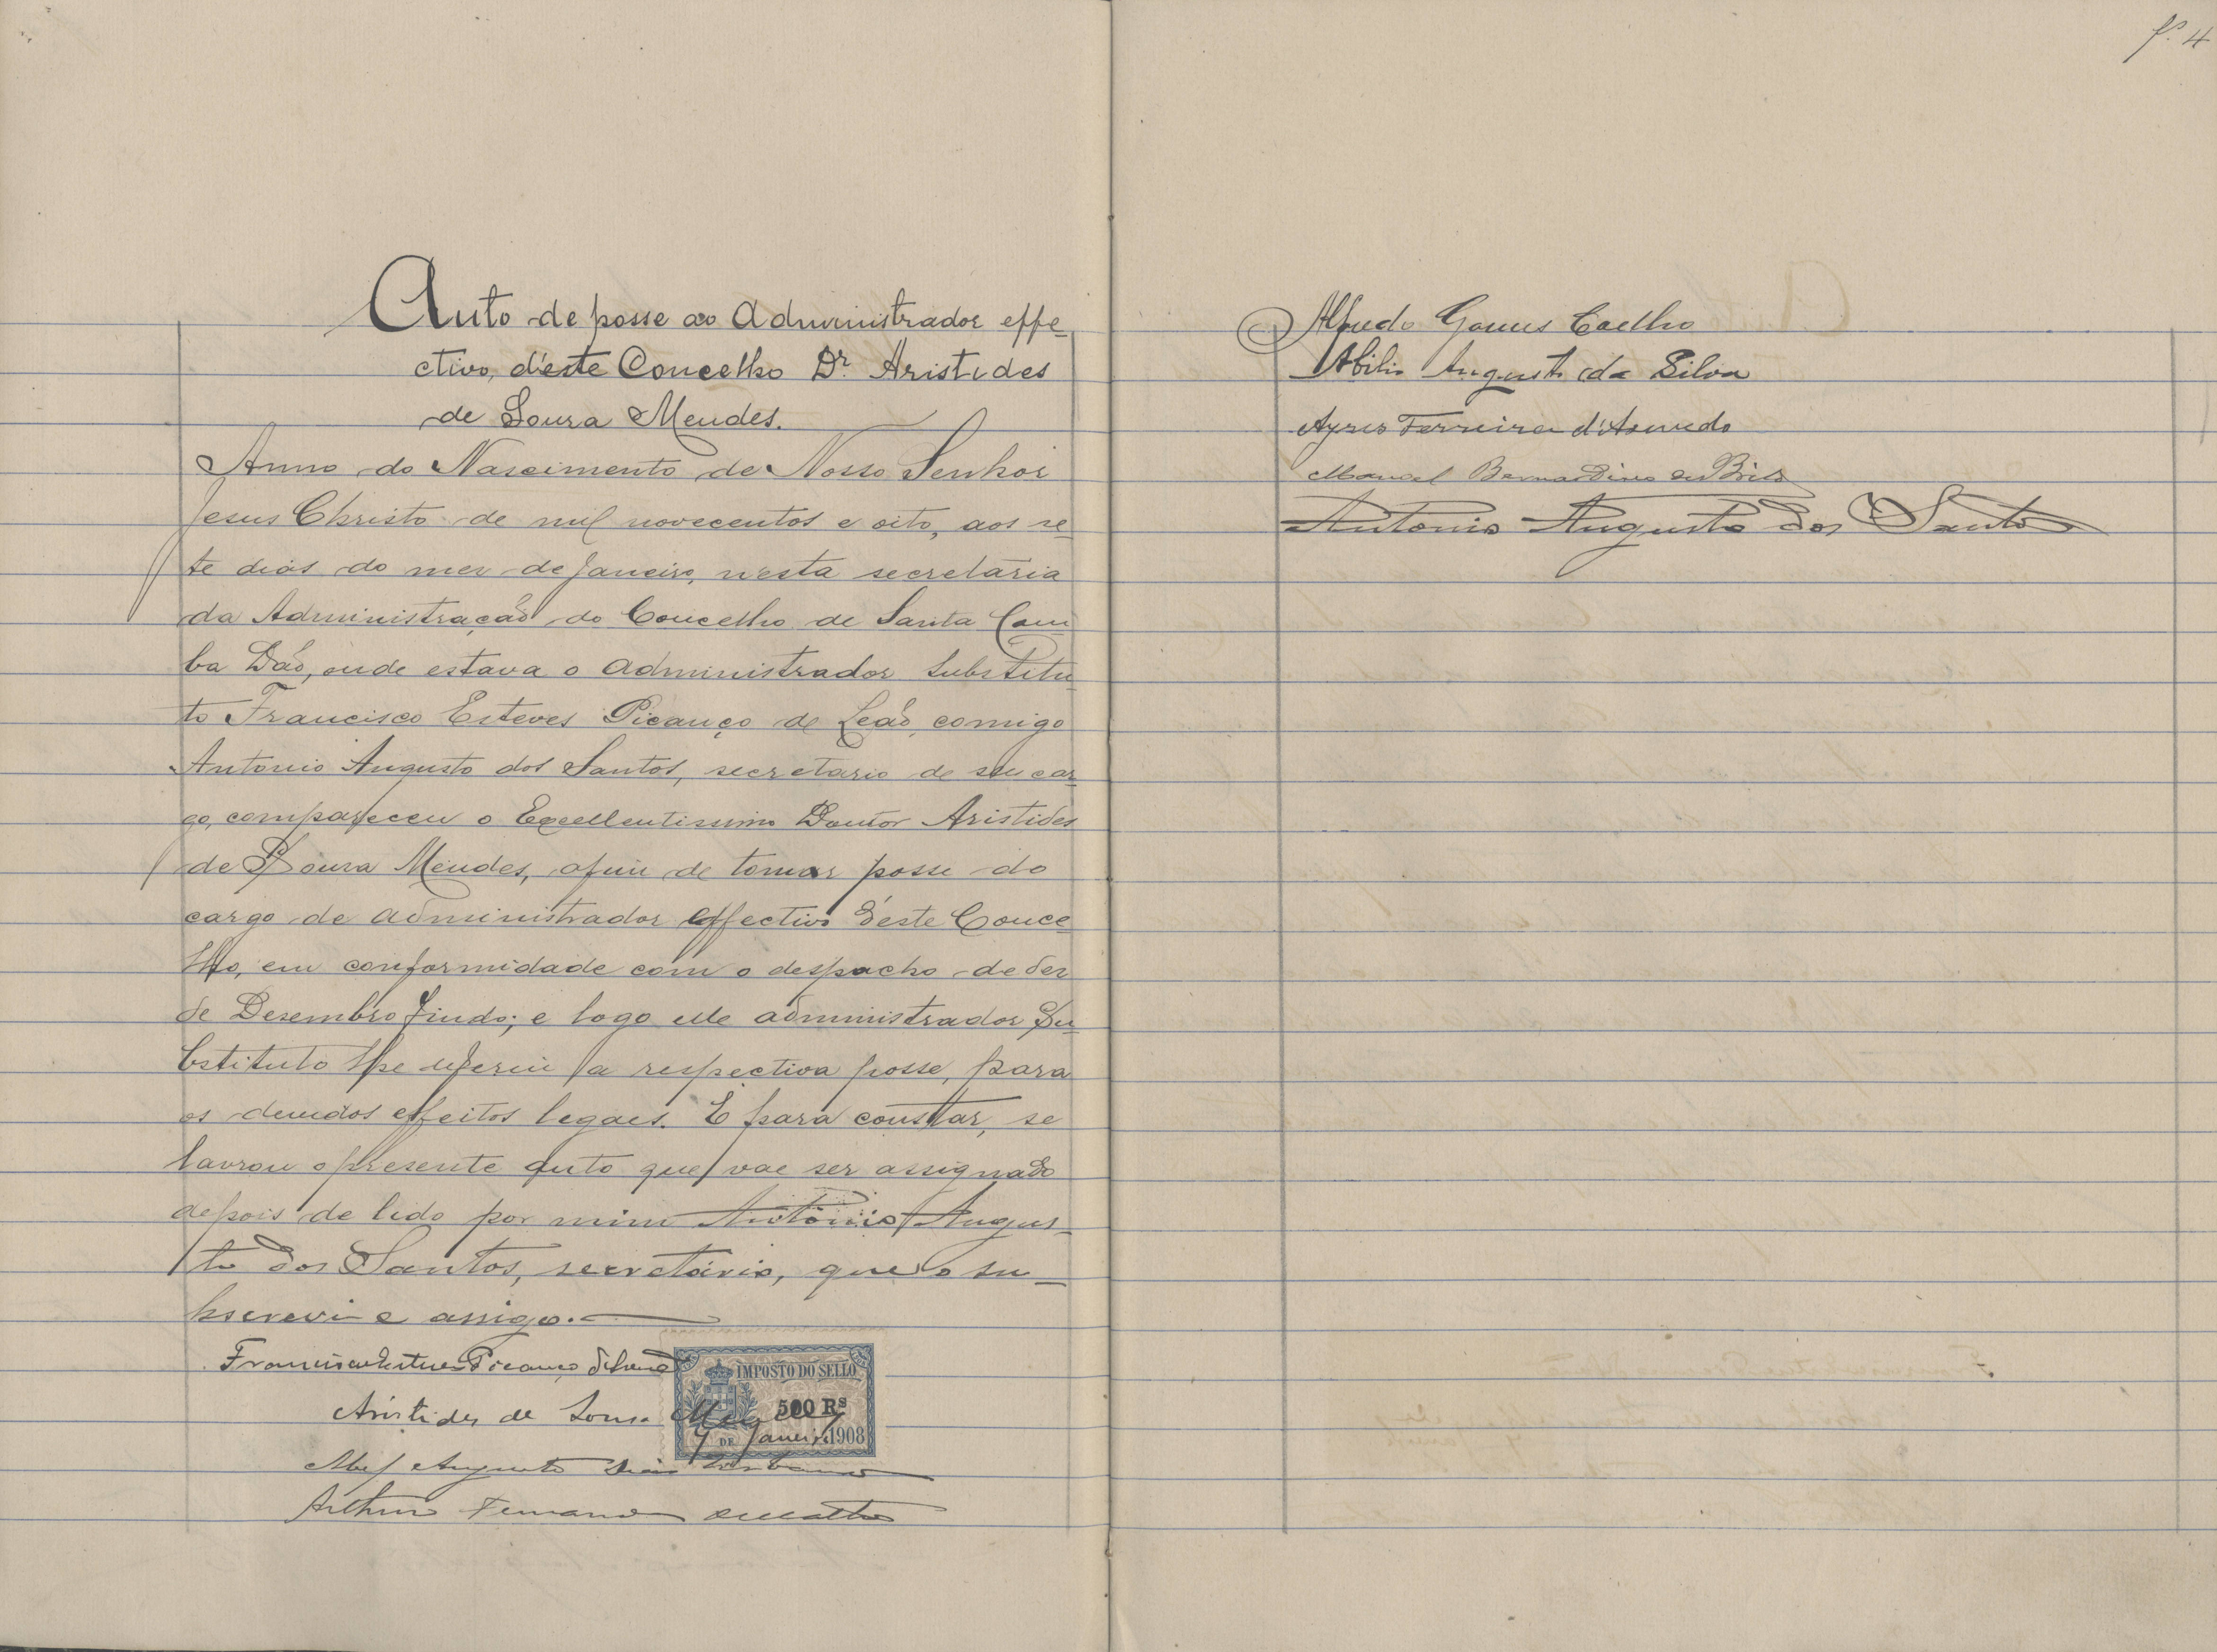 Auto de posse ao Administrador effe-
ctivo, d'este Concelho Dr. Aristides
de Sousa Mendes.
Anno do Nascimento de Nosso Senhor
Jesus Christo de mil novecentos e oito, aos se-
te dias do mez de Janeiro, n'esta secretaria
da Administração do Concelho de Santa Com-
ba Dão, onde estava o Administrador Substitu-
to Francisco Esteves Picanço de Leão, comigo
Antonio Augusto dos Santos, secretario de seu car-
go, compareceu o Excellentissimo Doutor Aristides
de Sousa Mendes, afim de tomar posse do
cargo de administrador effectivo d'este Conce-
lho, em conformidade com o despacho de dez
de Desembro findo; e logo elle administrador Su-
bstituto lhe deferiu a respectiva posse, para
os devidos effeitos legaes. E para constar, se
lavrou o presente auto que vae ser assignado
depois de lido por mim Antonio Augus-
to dos Santos, secretário, que o su-
bscrevi e assigo.
Francisco Esteves Picanço de Leão
IMPOSTO DO SELLO
500 Rs
Aristides de Sousa Mendes
7 DE Janeiro 1908
Augusto Dias
Arthur Fernandes
fs. 4
Alfredo Gomes Coelho
Abilio Augusto da Silva
Ayres Ferreira d'Asevedo
Manoel Bernardino de Brito
Antonio Augusto dos Santos